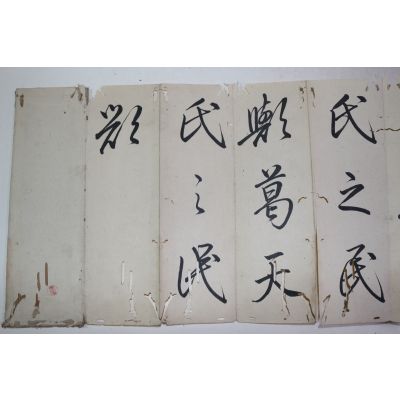 氏之民
歟葛天
氏之氓
歟